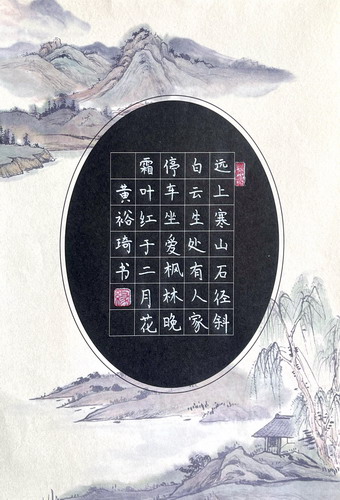 远上寒山石径斜
白云生处有人家
停车坐爱枫林晚
霜叶红于二月花
黄裕琦书